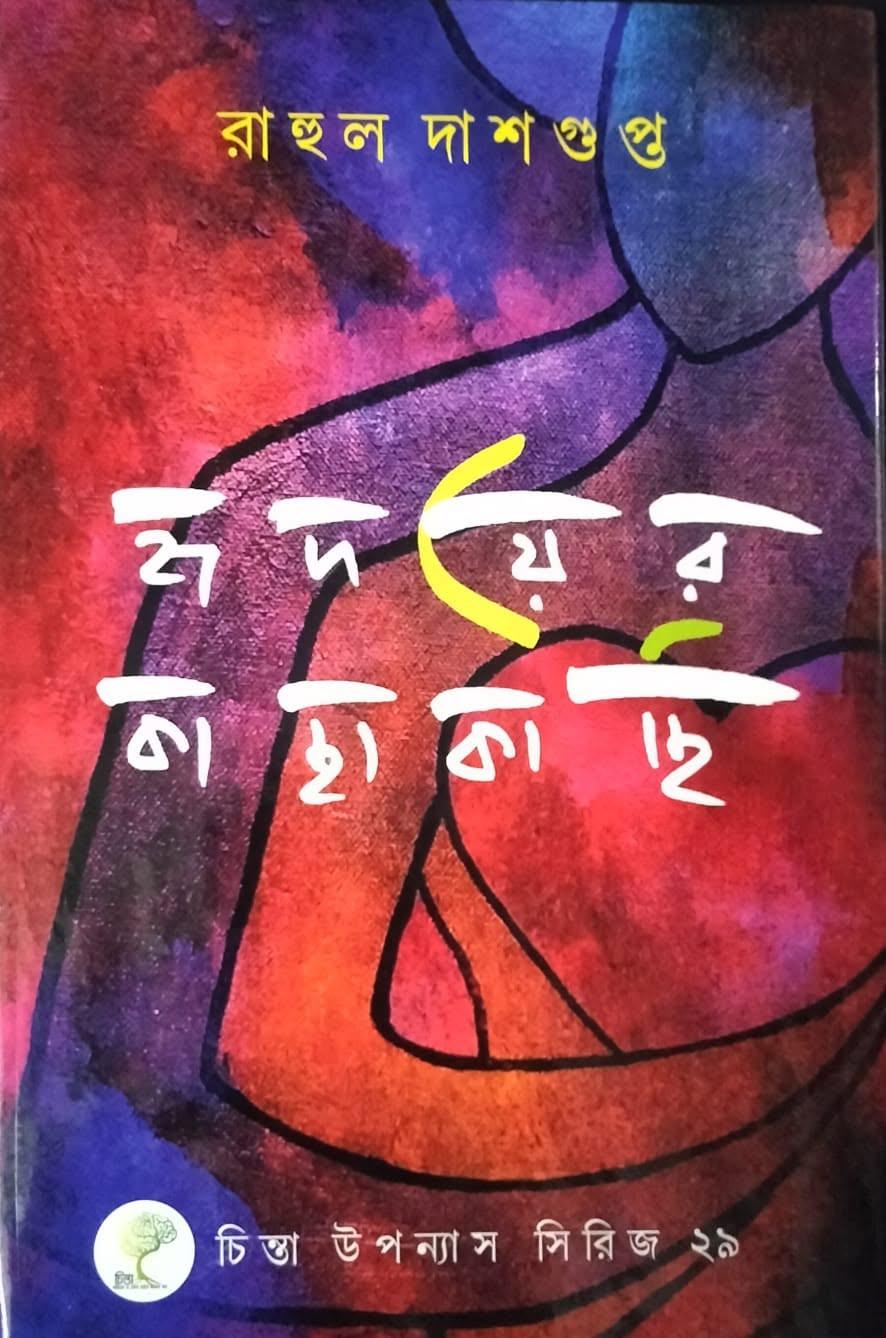 রাহুল দাশগুপ্ত
হৃদয়ের
কাছাকাছি
চিন্তা
চিন্তা উপন্যাস সিরিজ ২৯